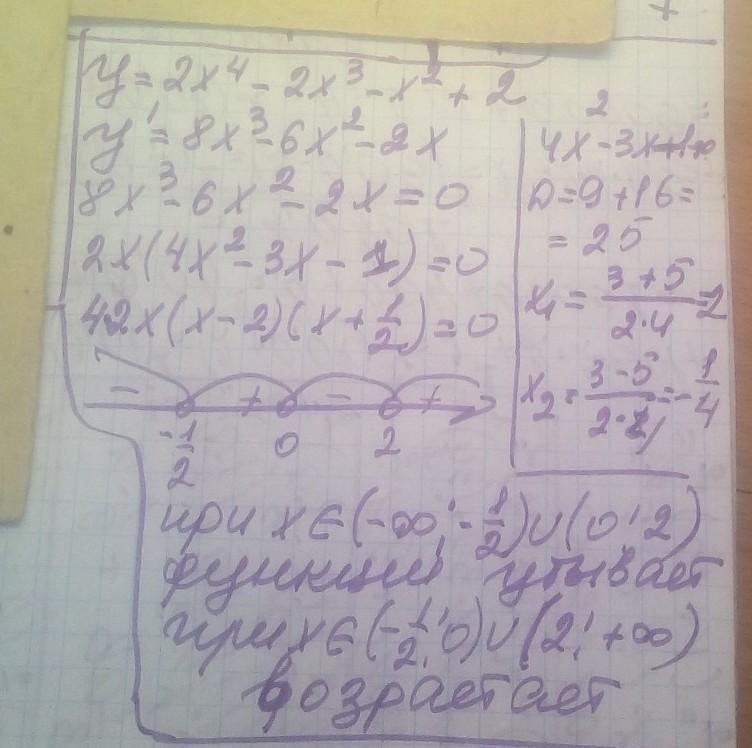 y = 2x⁴ - 2x³ - x² + 2
y' = 8x³ - 6x² - 2x
8x³ - 6x² - 2x = 0
2x(4x² - 3x - 1) = 0
42x(x - 2)(x + 1/2) = 0
- + - +
-1/2 0 2
4x² - 3x + 1 =
D = 9 + 16 =
= 25
x₁ = (3 + 5)/(2·4) =
x₂ = (3 - 5)/(2·4) = -1/4
при x ∈ (-∞; -1/2) ∪ (0; 2)
функция убывает
при x ∈ (-1/2; 0) ∪ (2; +∞)
возрастает